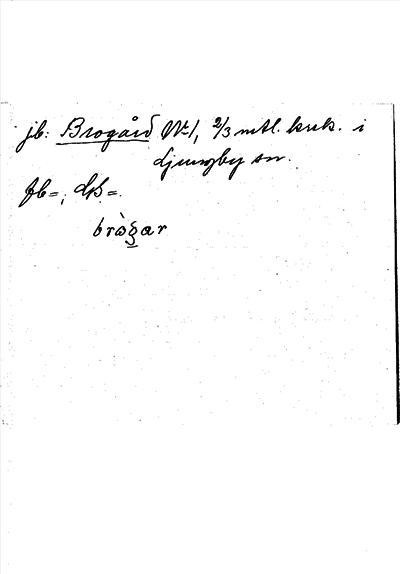 jb: Brogård Nr 1, 2/3 mtl. krsk. i
Ljungby sn.
fb =; GK =.
bròg̲ar